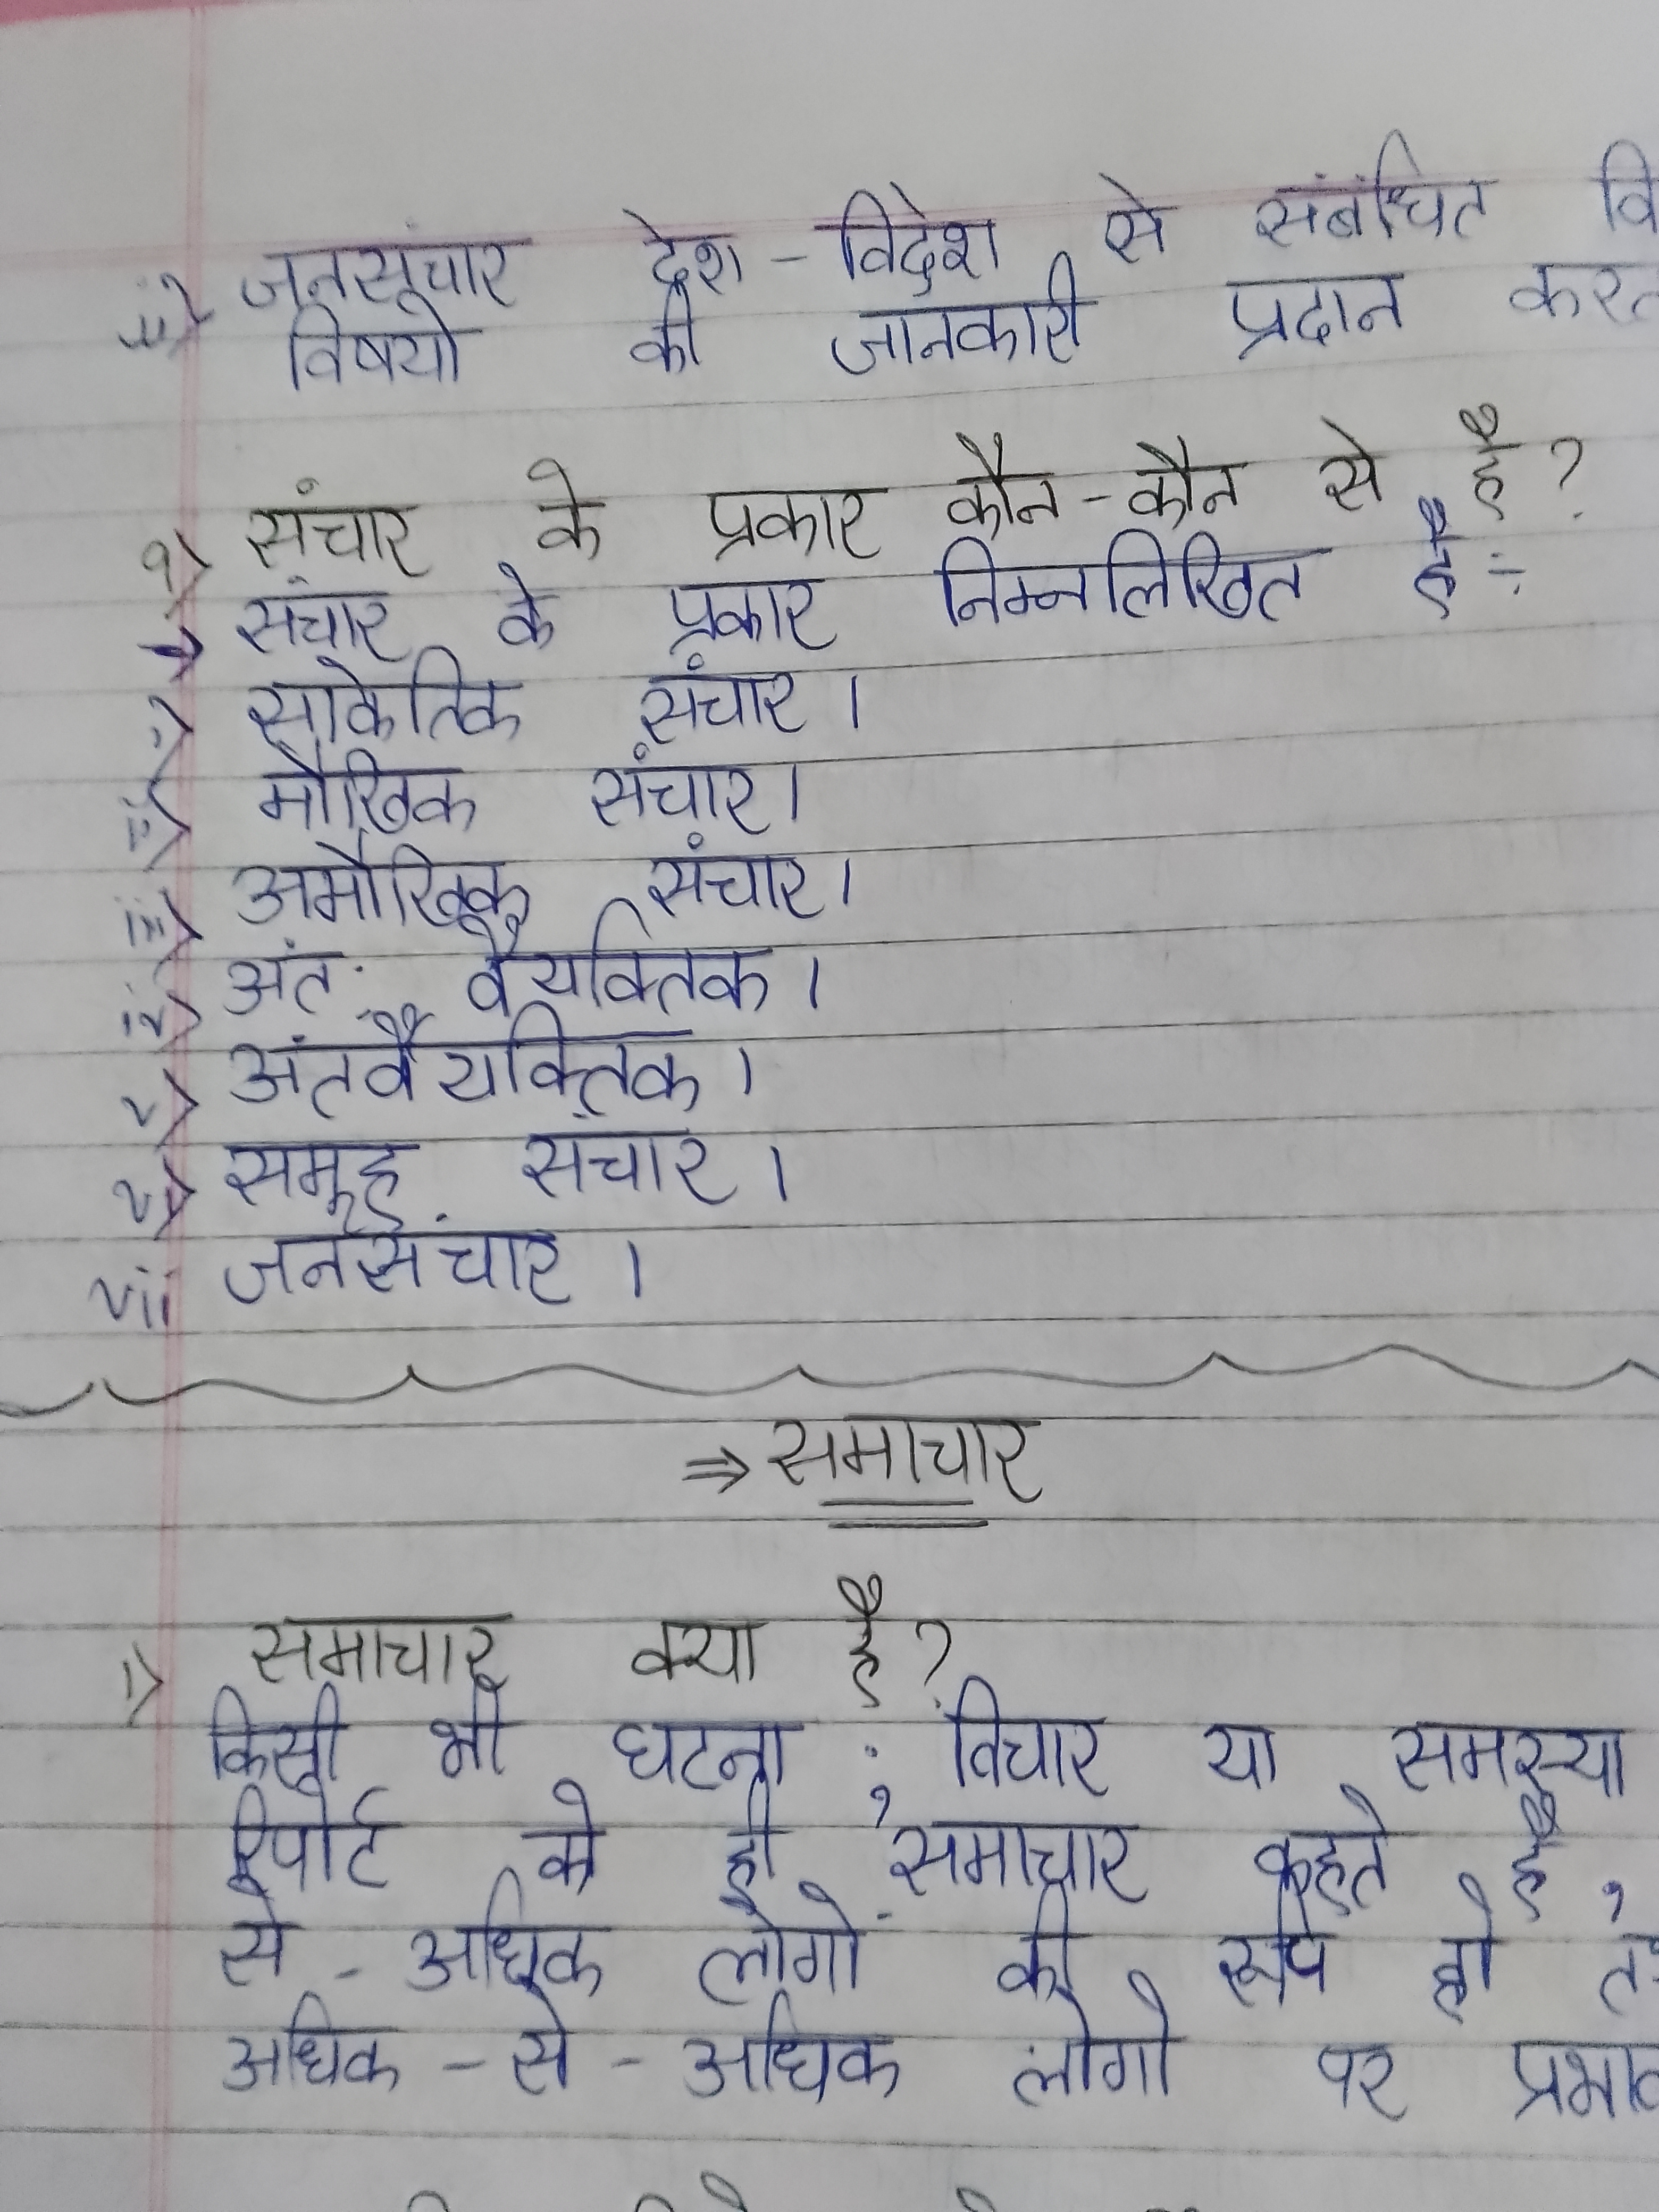 iii) जनसंचार देश - विदेश से संबंधित वि
विषयो की जानकारी प्रदान करत
१) संचार के प्रकार कौन - कौन से है ?
→ संचार के प्रकार निम्नलिखित है :-
i) सांकेतिक संचार ।
ii) मौखिक संचार ।
iii) अमौखिक संचार ।
iv) अंत: वैयक्तिक ।
v) अंतवैयक्तिक ।
vi) समूह संचार ।
vii जनसंचार ।
⇒ समाचार
1) समाचार क्या है ?
किसी भी घटना , विचार या समस्या
रिपोर्ट को ही समाचार कहते है ,
से - अधिक लोगों की हो
अधिक - से - अधिक लोगो पर प्रभाव